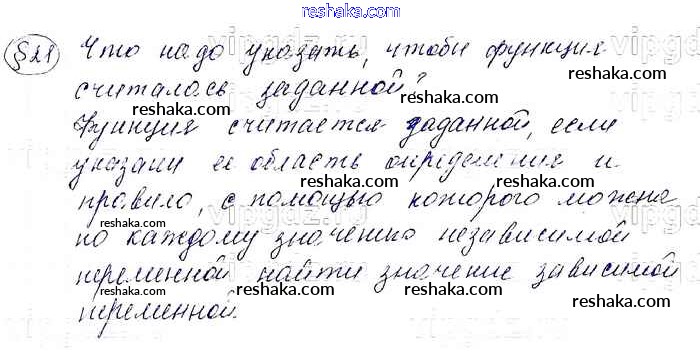 reshaka.com
§21 Что надо указать, чтобы функция
считалась заданной?
reshaka.com reshaka.com
Функция считается заданной, если
указаны её область определения и
reshaka.com reshaka.com
правило, с помощью которого можно
reshaka.com reshaka.com reshaka.com
по каждому значению независимой
reshaka.com reshaka.com
переменной найти значение зависимой
reshaka.com reshaka.com reshaka.com
переменной.